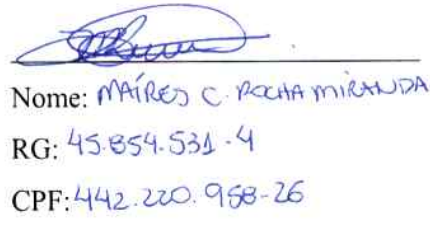 Nome: MAÍRES C. ROCHA MIRANDA
RG: 45.854.531-4
CPF: 442.220.958-26